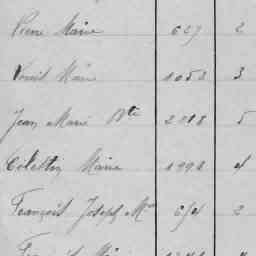 Pierre Marie 627 2
Marie 1053 3
Jean Marie Bte 2018 5
Célestin Marie 1998 4
François Joseph Mie 614 2